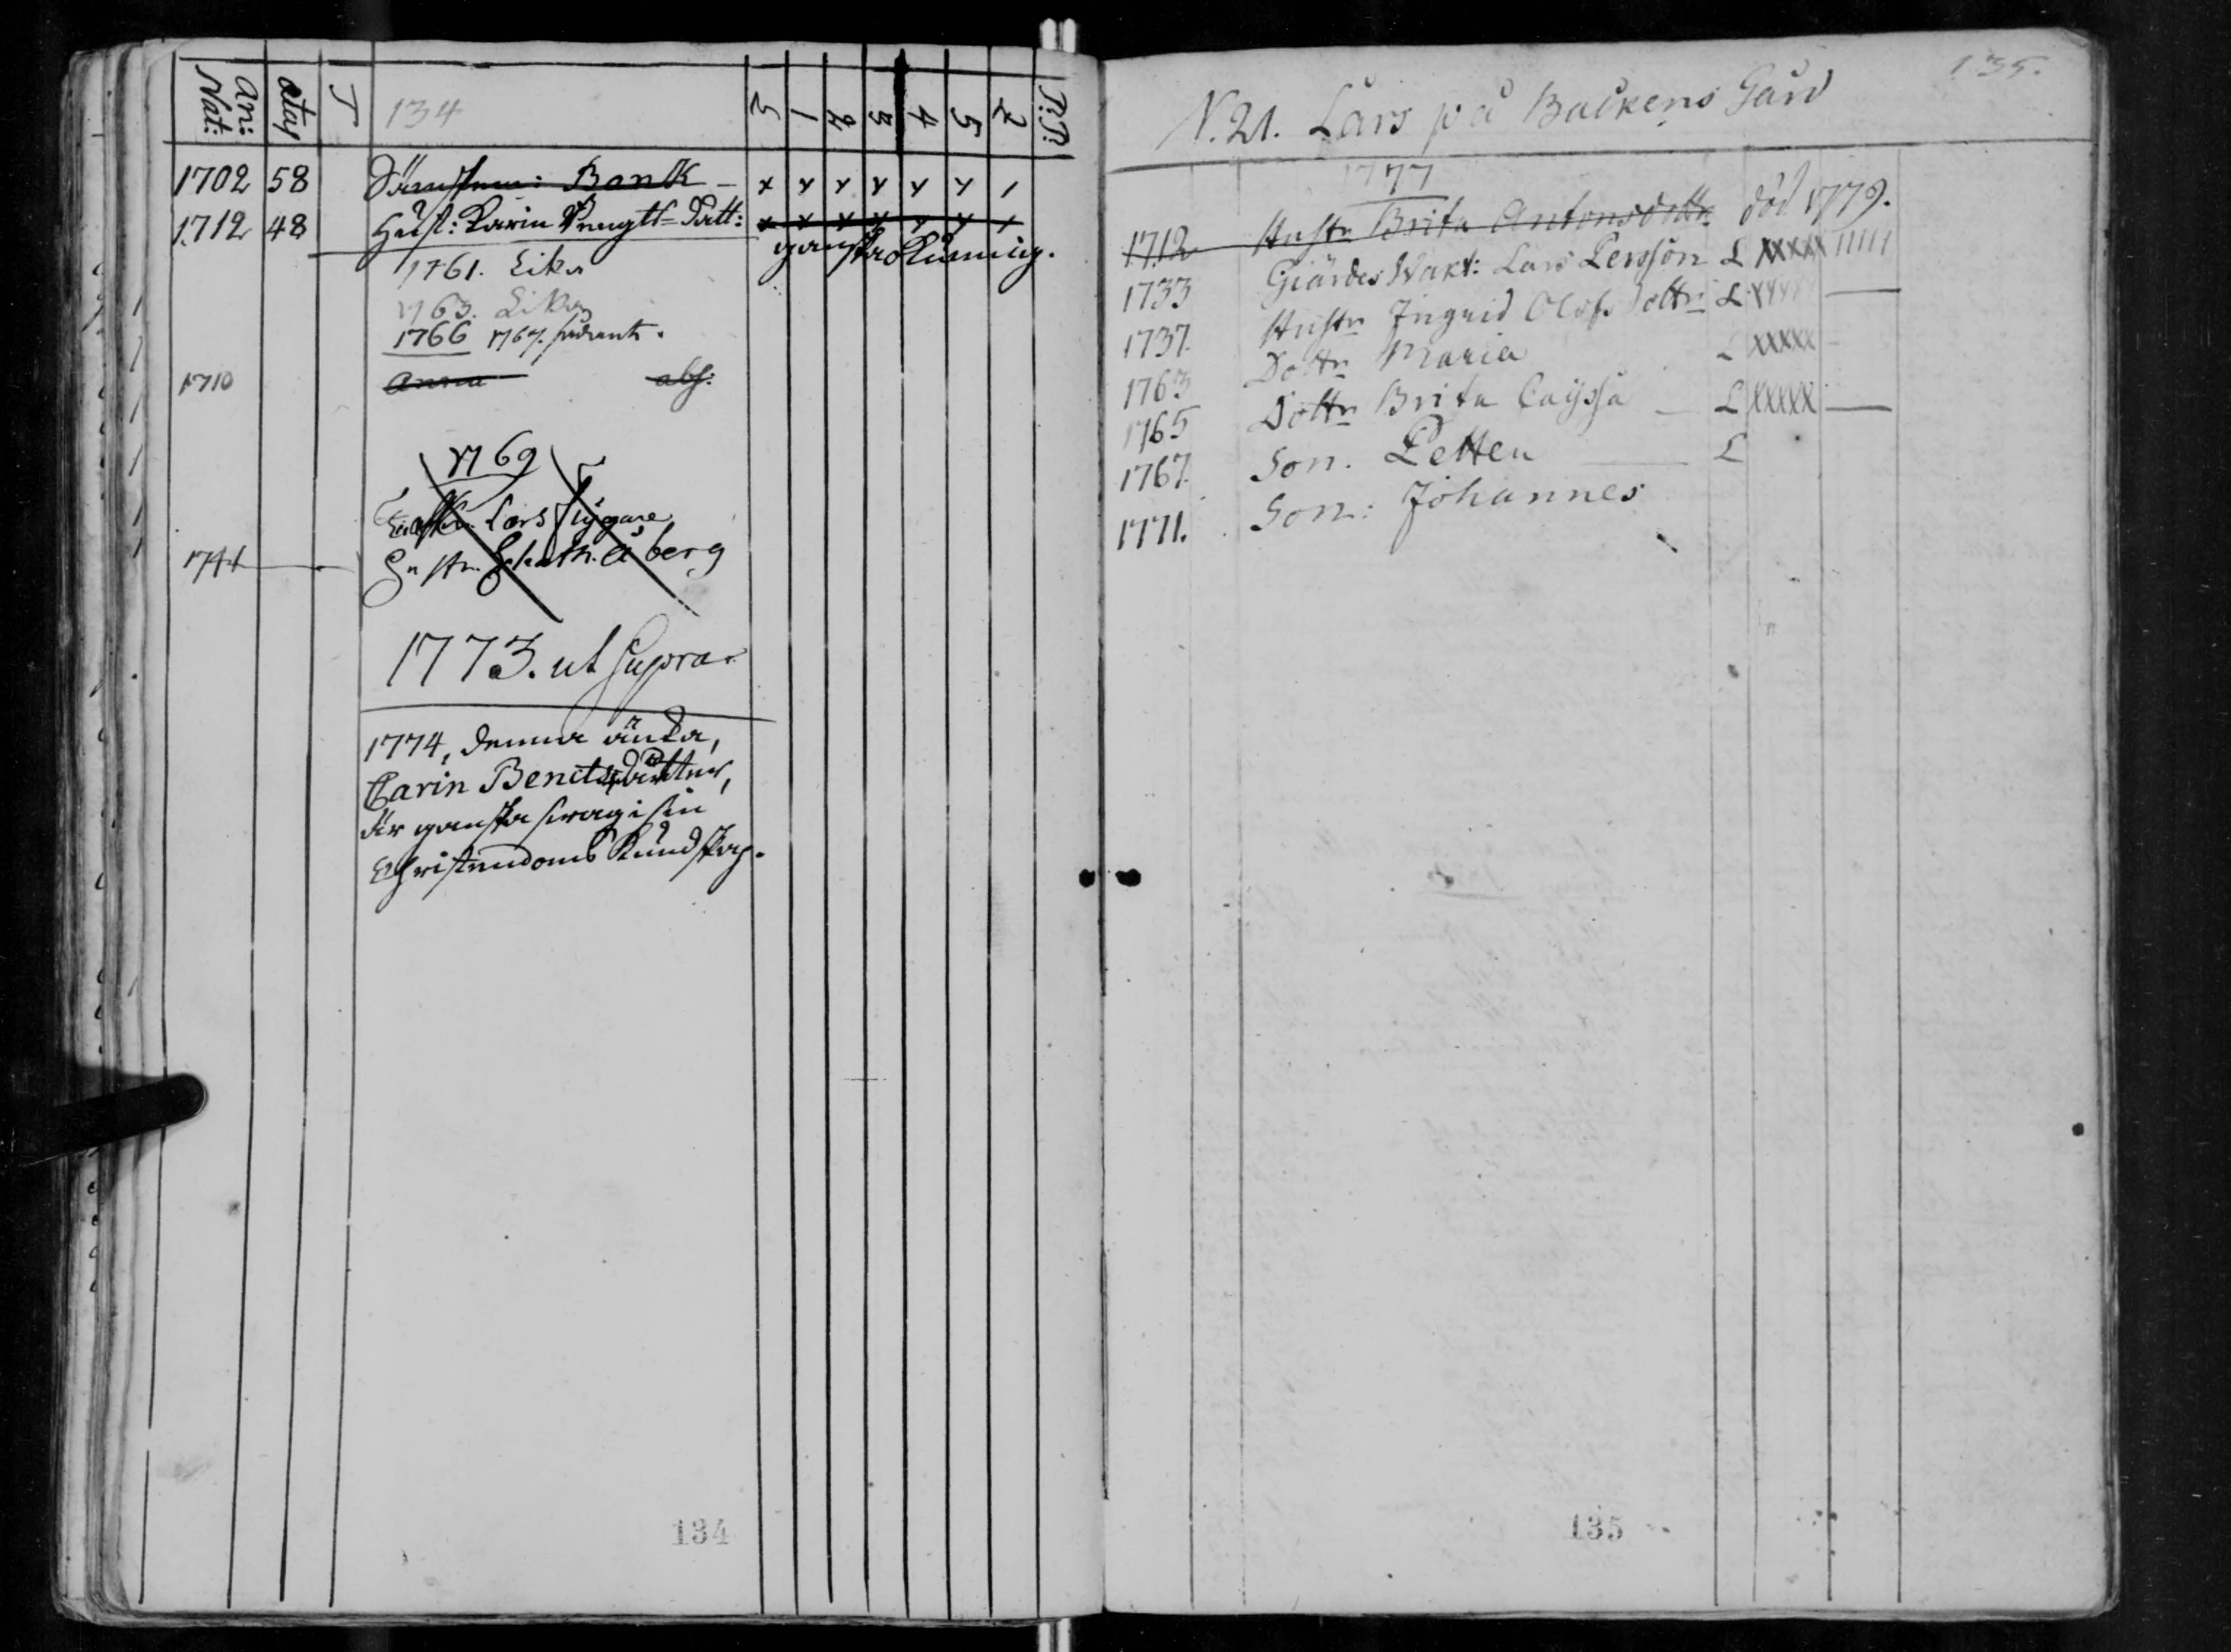 An: Nat: ætas T 134 S 1 2 3 4 5 2 P.P.
1702 58 Bonk
1712 48 Hust: Karin Bengts Dott:
ganska kunnig.
1761. Lika
1763. Lika
1766 1767.
1710 Anna abs:
1769
Lars
1744 Hustr. berg
1773. ut supra
1774, denna änka,
Carin Bencts dotter,
är ganska svag i sin
Christendoms Kundskap.
134
135.
N. 21. Lars på Backens Gård
1777
1712 Hustr Brita Antonsdottr död 1779.
1733 Giärdes Wakt: Lars Persson L XXXXX IIIII
1737. Hustr Ingrid Olofs dottr L XXXXX
1763 Dottr Maria L XXXXX
1765 Dottr Brita Caijssa L XXXXX
1767. Son. Petter L
1771. Son: Johannes
135